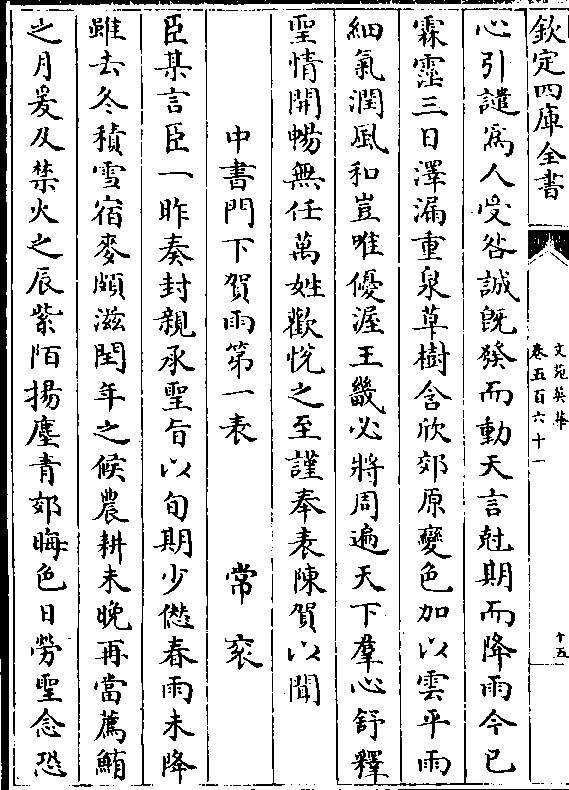 欽定四庫全書
文苑英華
卷五百六十一
十五
心引譴為人受咎誠既發而動天言尅期而降雨今已
霖霪三日澤漏重泉草樹含欣郊原變色加以雲平雨
細氣潤風和豈唯優渥王畿必將周遍天下羣心舒釋
聖情開暢無任萬姓歡悅之至謹奉表陳賀以聞
中書門下賀雨第一表 常衮
臣某言臣一昨奏封親承聖旨以旬期少愆春雨未降
雖去冬積雪宿麥頗滋閏年之候農耕未晚再當薦鮪
之月爰及禁火之辰紫陌揚塵青郊晦色日勞聖念恐